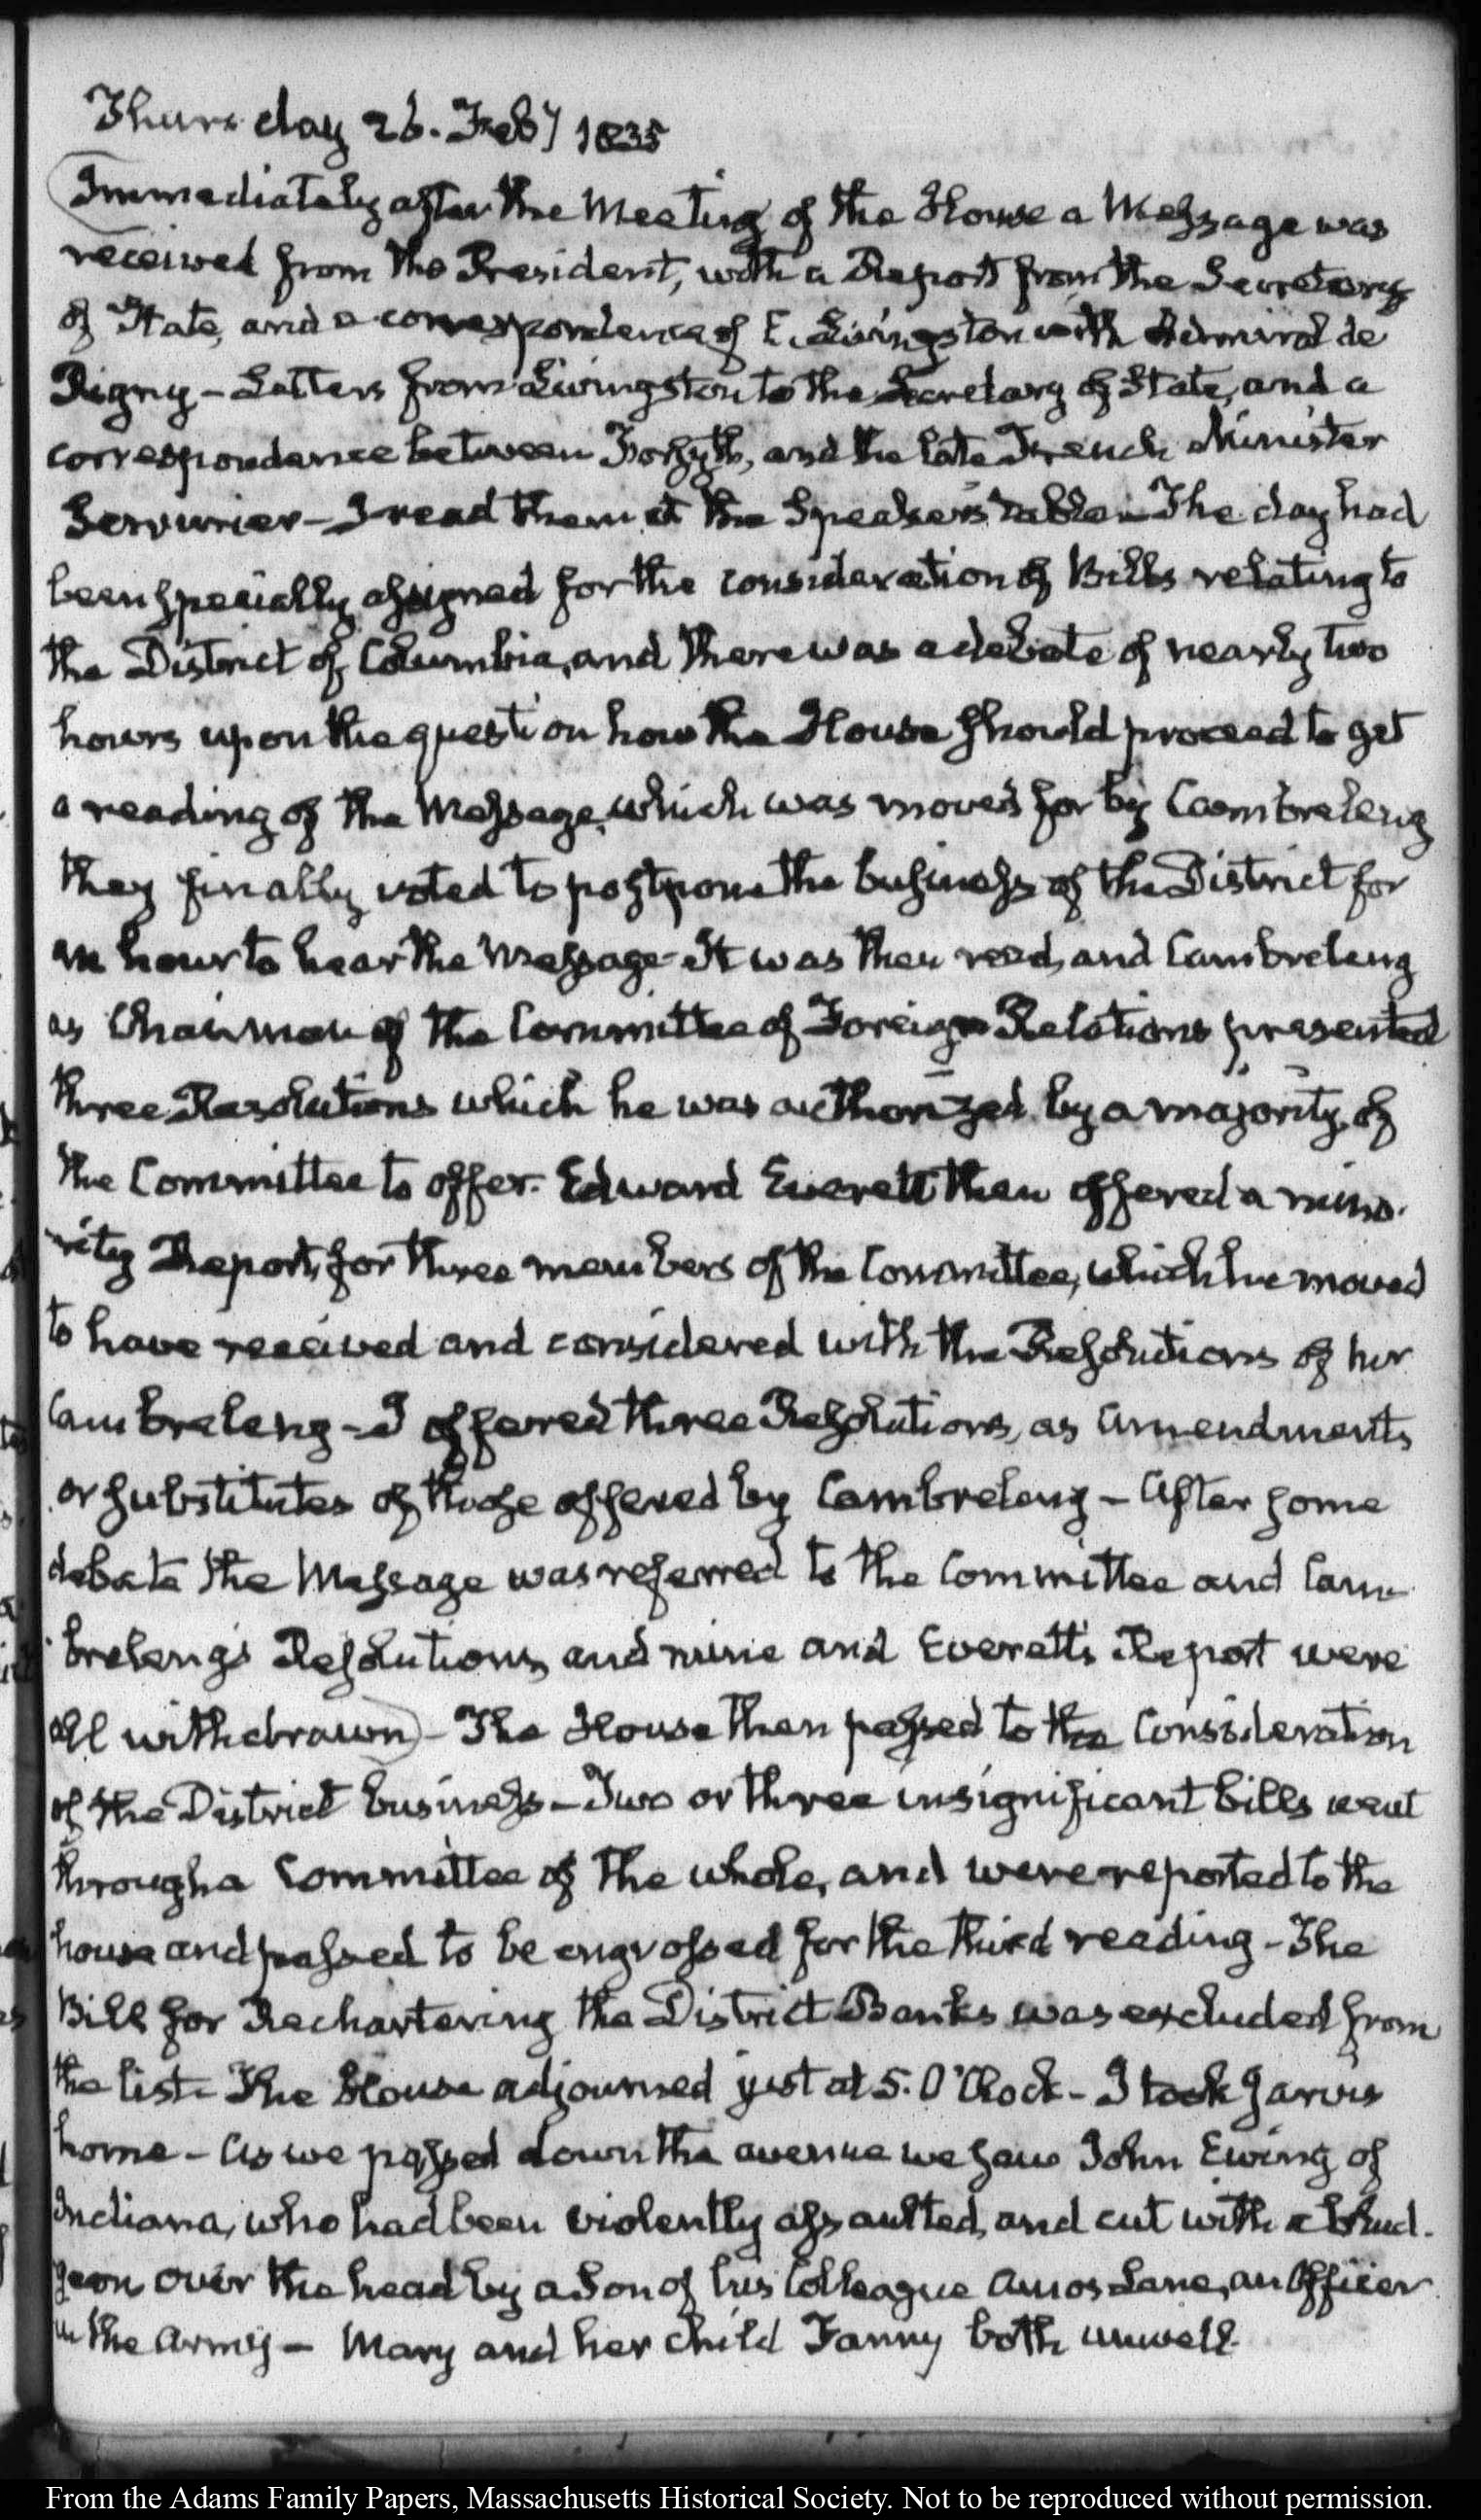 Thursday 26. Feby 1835
Immediately after the Meeting of the House a Message was
received from the President, with a Report from the Secretary
of State, and a correspondence of E. Livingston with Admiral de
Rigny – Letters from Livingston to the Secretary of State, and a
correspondence between Forsyth, and the late French Minister
Serrurier – I read them at the Speaker's table – The day had
been specially assigned for the consideration of Bills relating to
the District of Columbia, and there was a debate of nearly two
hours upon the question how the House should proceed to get
a reading of the Message, which was moved for by Cambreleng
they finally voted to postpone the business of the District for
an hour to hear the Message – It was then read, and Cambreleng
as Chairman of the Committee of Foreign Relations presented
three Resolutions which he was authorized by a majority, of
the Committee to offer. Edward Everett then offered a mino-
rity Report, for three members of the Committee, which he moved
to have received and considered with the Resolutions of Mr
Cambreleng – I offered three Resolutions, as amendments
or substitutes of those offered by Cambreleng – After some
debate the Message was referred to the Committee and Cam-
breleng's Resolutions, and mine and Everett's Report were
all withdrawn) – The House then passed to the Consideration
of the District business – Two or three insignificant bills went
through a Committee of the whole, and were reported to the
house and passed to be engrossed for the third reading – The
Bill for Rechartering the District Banks was excluded from
the list – The House adjourned just at 5. O'Clock – I took Jarvis
home – As we passed down the avenue we saw John Ewing of
Indiana, who had been violently assaulted, and cut with a blud-
geon over the head by a Son of his Colleague Amos Lane, an Officer
in the Army – Mary and her child Fanny both unwell.
From the Adams Family Papers, Massachusetts Historical Society. Not to be reproduced without permission.